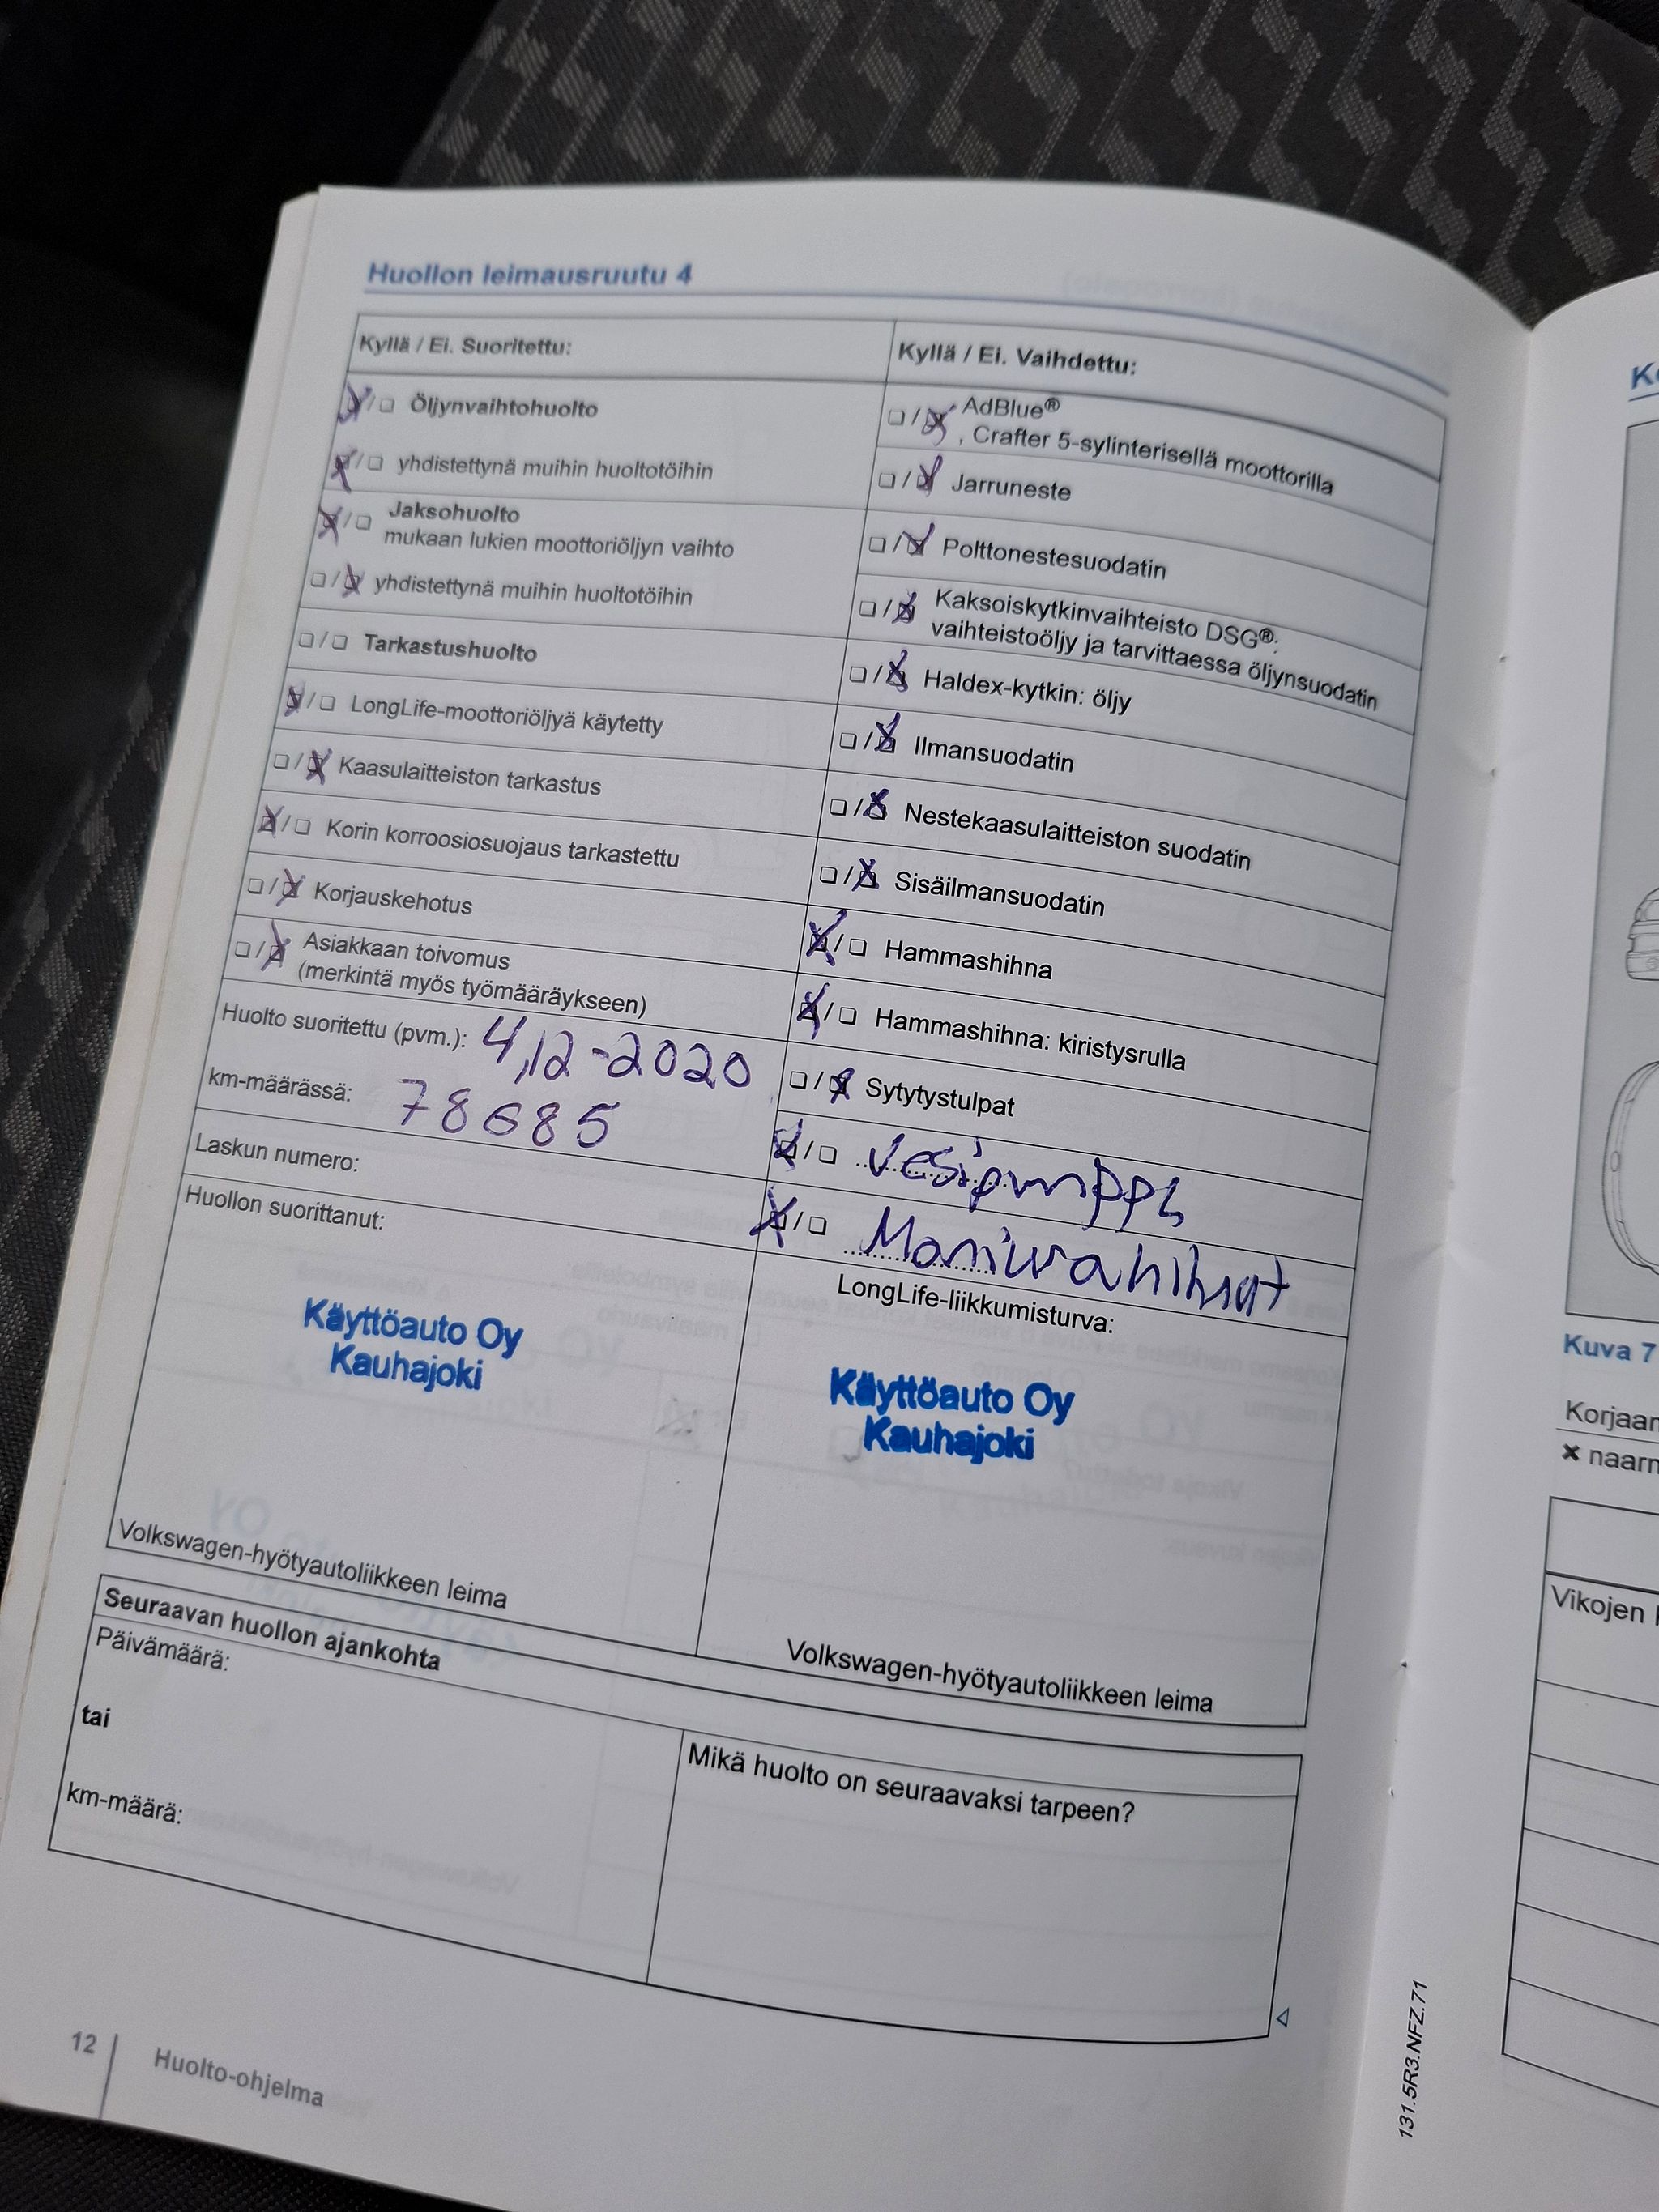 Huollon leimausruutu 4
Kyllä / Ei. Suoritettu:
Öljynvaihtohuolto
yhdistettynä muihin huoltotöihin
Jaksohuolto
mukaan lukien moottoriöljyn vaihto
yhdistettynä muihin huoltotöihin
Tarkastushuolto
LongLife-moottoriöljyä käytetty
Kaasulaitteiston tarkastus
Korin korroosiosuojaus tarkastettu
Korjauskehotus
Asiakkaan toivomus
(merkintä myös työmääräykseen)
Huolto suoritettu (pvm.): 4,12-2020
km-määrässä: 78685
Laskun numero:
Huollon suorittanut:
Käyttöauto Oy
Kauhajoki
Volkswagen-hyötyautoliikkeen leima
Kyllä / Ei. Vaihdettu:
AdBlue®
, Crafter 5-sylinterisellä moottorilla
Jarruneste
Polttonestesuodatin
Kaksoiskytkinvaihteisto DSG®:
vaihteistoöljy ja tarvittaessa öljynsuodatin
Haldex-kytkin: öljy
Ilmansuodatin
Nestekaasulaitteiston suodatin
Sisäilmansuodatin
Hammashihna
Hammashihna: kiristysrulla
Sytytystulpat
Vesipumppu
LongLife-liikkumisturva:
Käyttöauto Oy
Kauhajoki
Volkswagen-hyötyautoliikkeen leima
Seuraavan huollon ajankohta
Päivämäärä:
tai
km-määrä:
Mikä huolto on seuraavaksi tarpeen?
12
Huolto-ohjelma
131.5R3.NFZ.71
Kuva 7
naarm
Vikojen